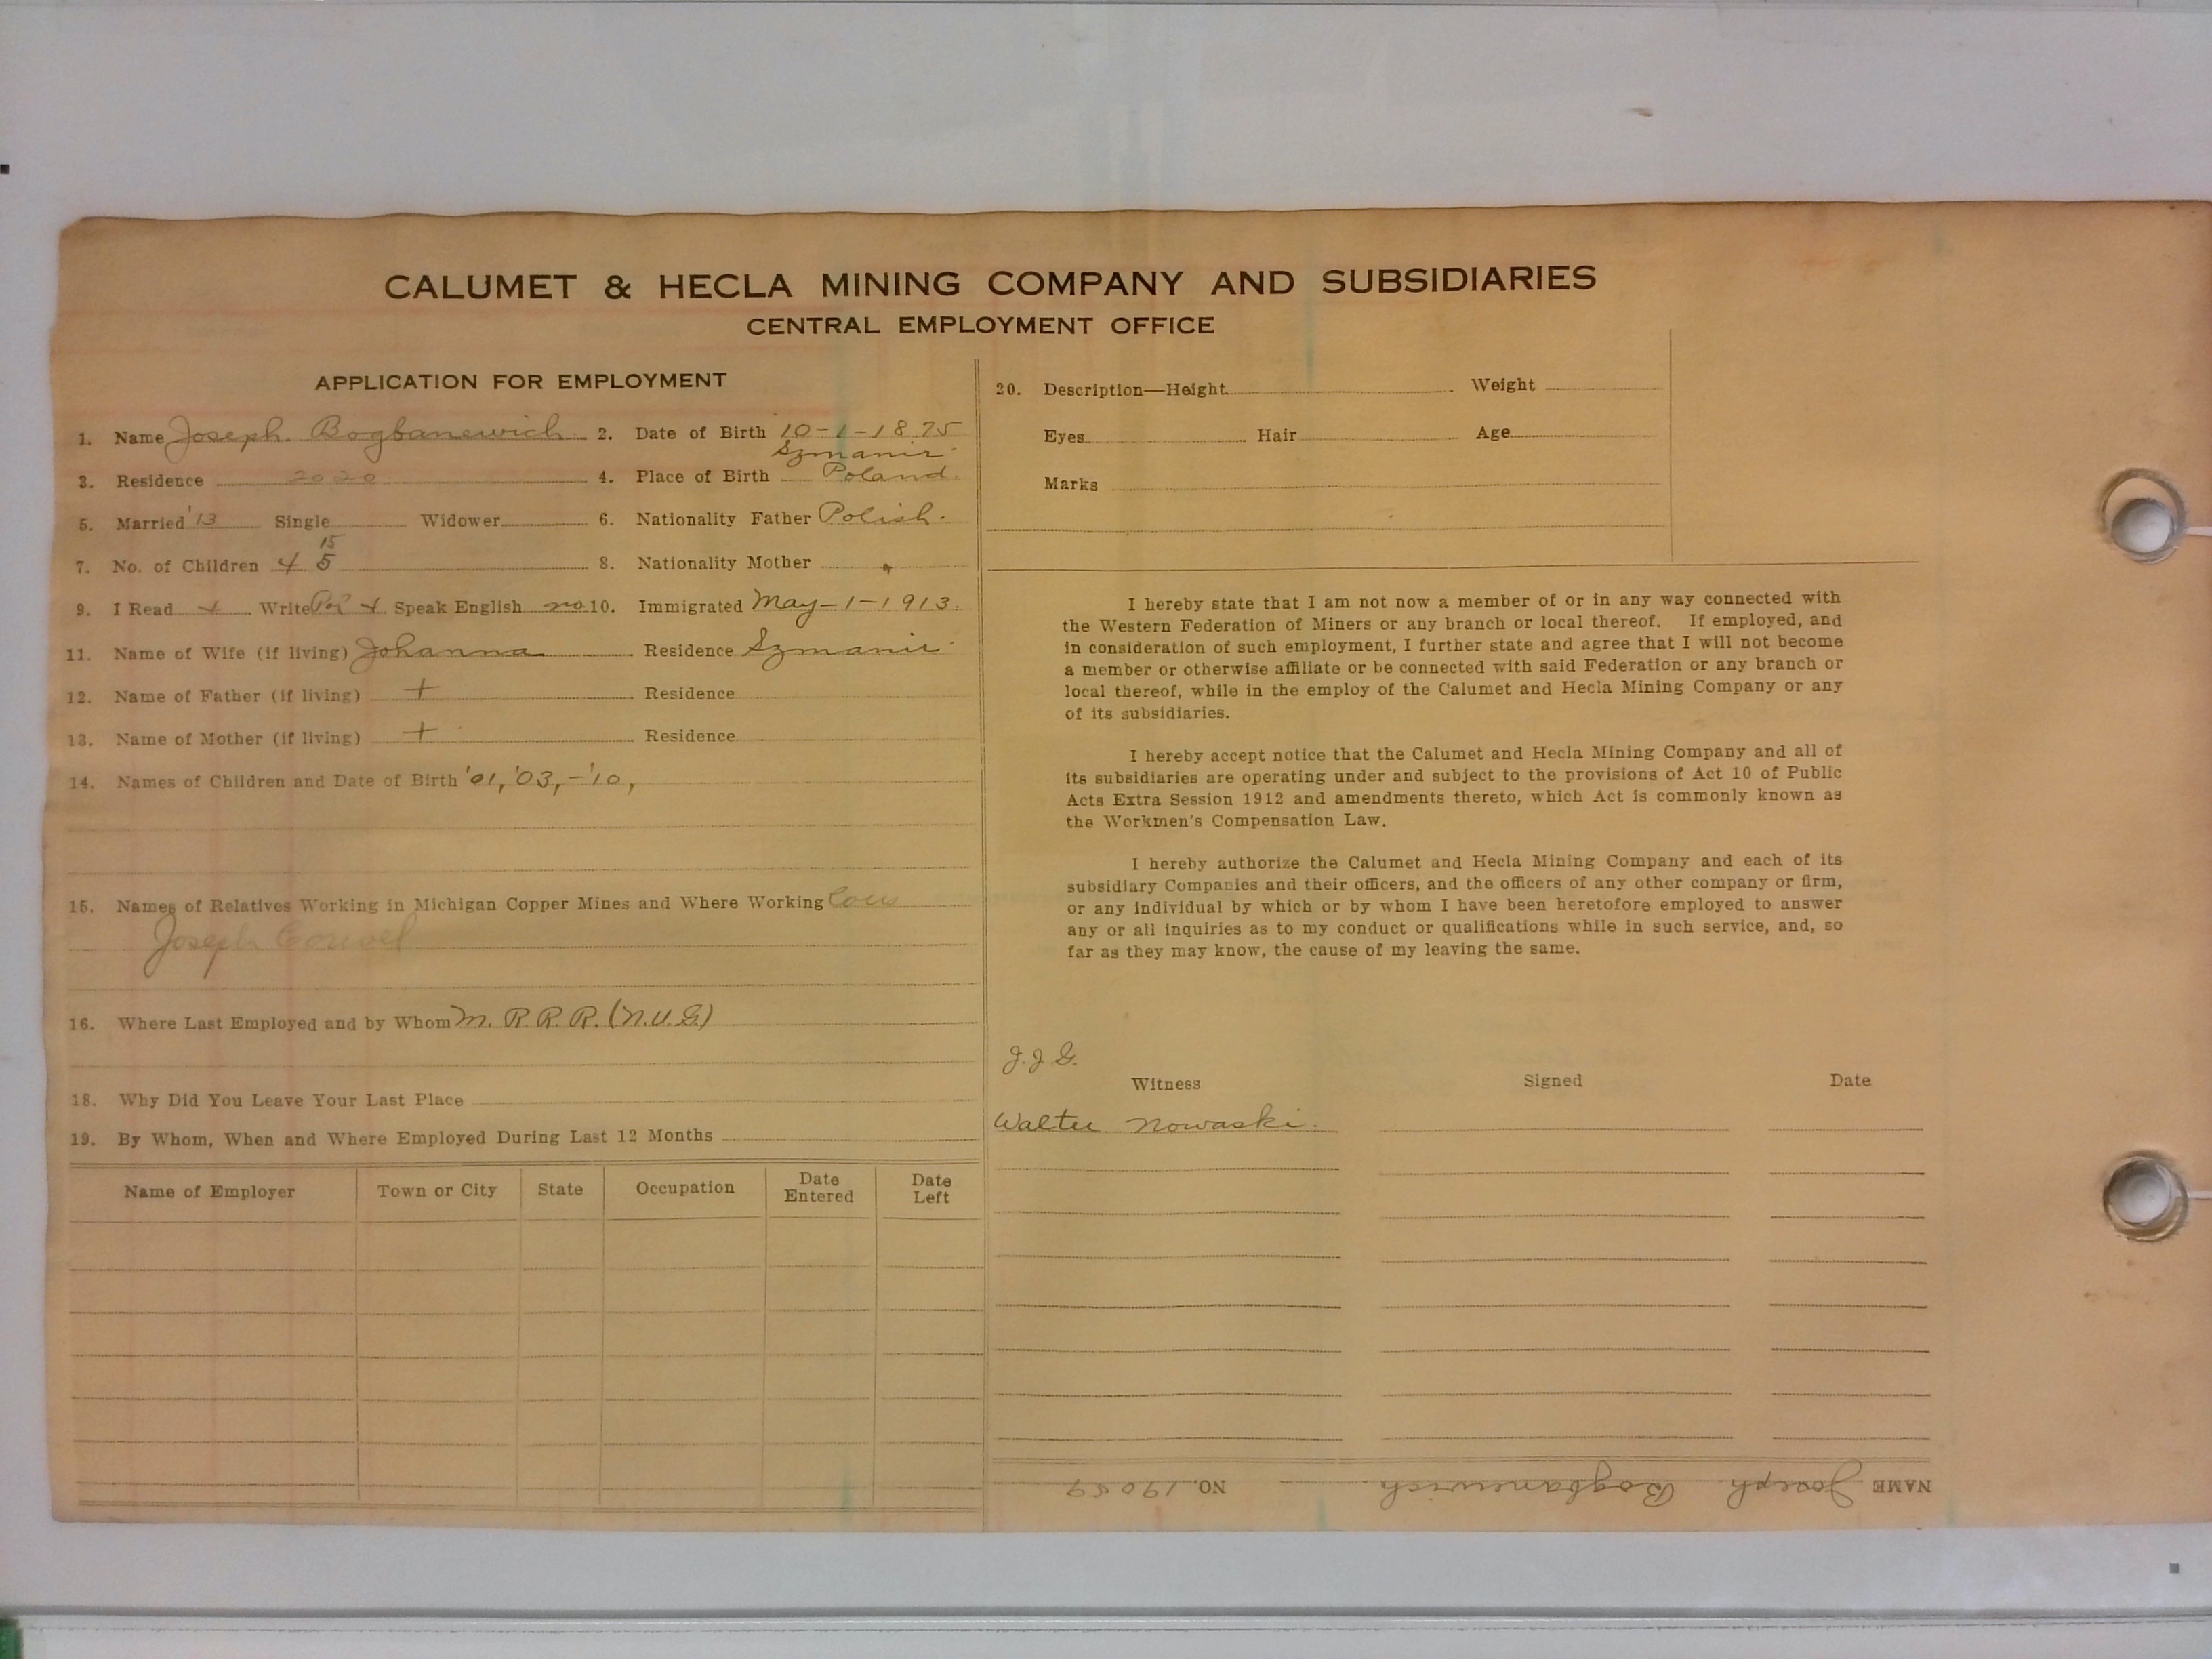 CALUMET & HECLA MINING COMPANY AND SUBSIDIARIES
CENTRAL EMPLOYMENT OFFICE
APPLICATION FOR EMPLOYMENT
1. Name Joseph. Bogbanewich 2. Date of Birth 10-1-1875
Szmanir
3. Residence 2020 4. Place of Birth Poland.
5. Married '13 Single Widower 6. Nationality Father Polish.
15
7. No. of Children 4 5 8. Nationality Mother "
9. I Read + Write Pol + Speak English no 10. Immigrated May-1-1913.
11. Name of Wife (if living) Johanna Residence Szmanir
12. Name of Father (if living) + Residence
13. Name of Mother (if living) + Residence
14. Names of Children and Date of Birth '01, '03, -'10,
15. Names of Relatives Working in Michigan Copper Mines and Where Working
Joseph
16. Where Last Employed and by Whom M. R R. R. (N.U.G)
18. Why Did You Leave Your Last Place
19. By Whom, When and Where Employed During Last 12 Months
Name of Employer Town or City State Occupation Date Entered Date Left
20. Description—Height Weight
Eyes Hair Age
Marks
I hereby state that I am not now a member of or in any way connected with
the Western Federation of Miners or any branch or local thereof. If employed, and
in consideration of such employment, I further state and agree that I will not become
a member or otherwise affiliate or be connected with said Federation or any branch or
local thereof, while in the employ of the Calumet and Hecla Mining Company or any
of its subsidiaries.
I hereby accept notice that the Calumet and Hecla Mining Company and all of
its subsidiaries are operating under and subject to the provisions of Act 10 of Public
Acts Extra Session 1912 and amendments thereto, which Act is commonly known as
the Workmen's Compensation Law.
I hereby authorize the Calumet and Hecla Mining Company and each of its
subsidiary Companies and their officers, and the officers of any other company or firm,
or any individual by which or by whom I have been heretofore employed to answer
any or all inquiries as to my conduct or qualifications while in such service, and, so
far as they may know, the cause of my leaving the same.
J. J. G.
Witness Signed Date
Walter Nowaski.
NAME Joseph. Bogbanewich. NO. 19059